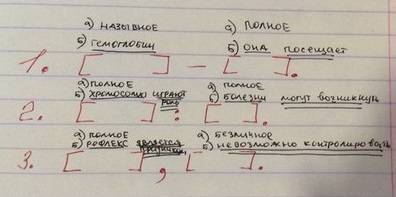 а) НАЗЫВНОЕ а) ПОЛНОЕ
б) ГЕМОГЛОБИН б) ОНА посещает
1. [ ] – [ ].
а) ПОЛНОЕ а) ПОЛНОЕ
б) ХРОМОСОМЫ ИГРАЮТ РОЛЬ б) БОЛЕЗНИ МОГУТ ВОЗНИКНУТЬ
2. [ ] : [ ].
а) ПОЛНОЕ а) БЕЗЛИЧНОЕ
б) РЕФЛЕКС ЯВЛЯЕТСЯ б) НЕВОЗМОЖНО КОНТРОЛИРОВАТЬ
3. [ ] , [ ].